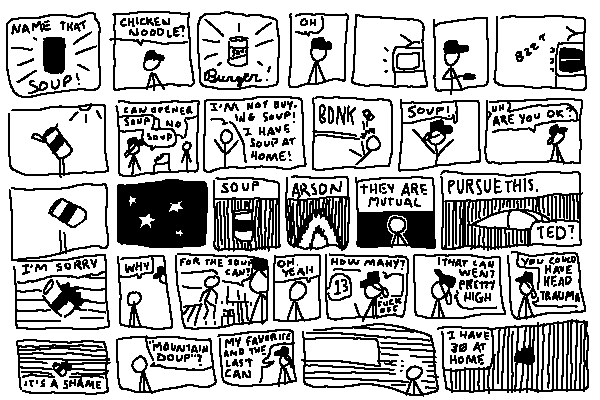 NAME THAT
SOUP!
CHICKEN
NOODLE?
Burger!
OH
BZZT
CAN OPENER
SOUP
NO
SOUP
I'M NOT BUY-
ING SOUP!
I HAVE
SOUP AT
HOME!
BONK
SOUP!
UH?
ARE YOU OK?
SOUP
ARSON
THEY ARE
MUTUAL
PURSUE THIS.
TED?
I'M SORRY
WHY
FOR THE SOUP
CAN?
OH.
YEAH
HOW MANY?
13
FUCK
OFF
THAT CAN
WENT
PRETTY
HIGH
YOU COULD
HAVE
HEAD
TRAUMA
IT'S A SHAME
"MOUNTAIN
DOUP"?
MY FAVORITE
AND THE
LAST
CAN
I HAVE
30 AT
HOME